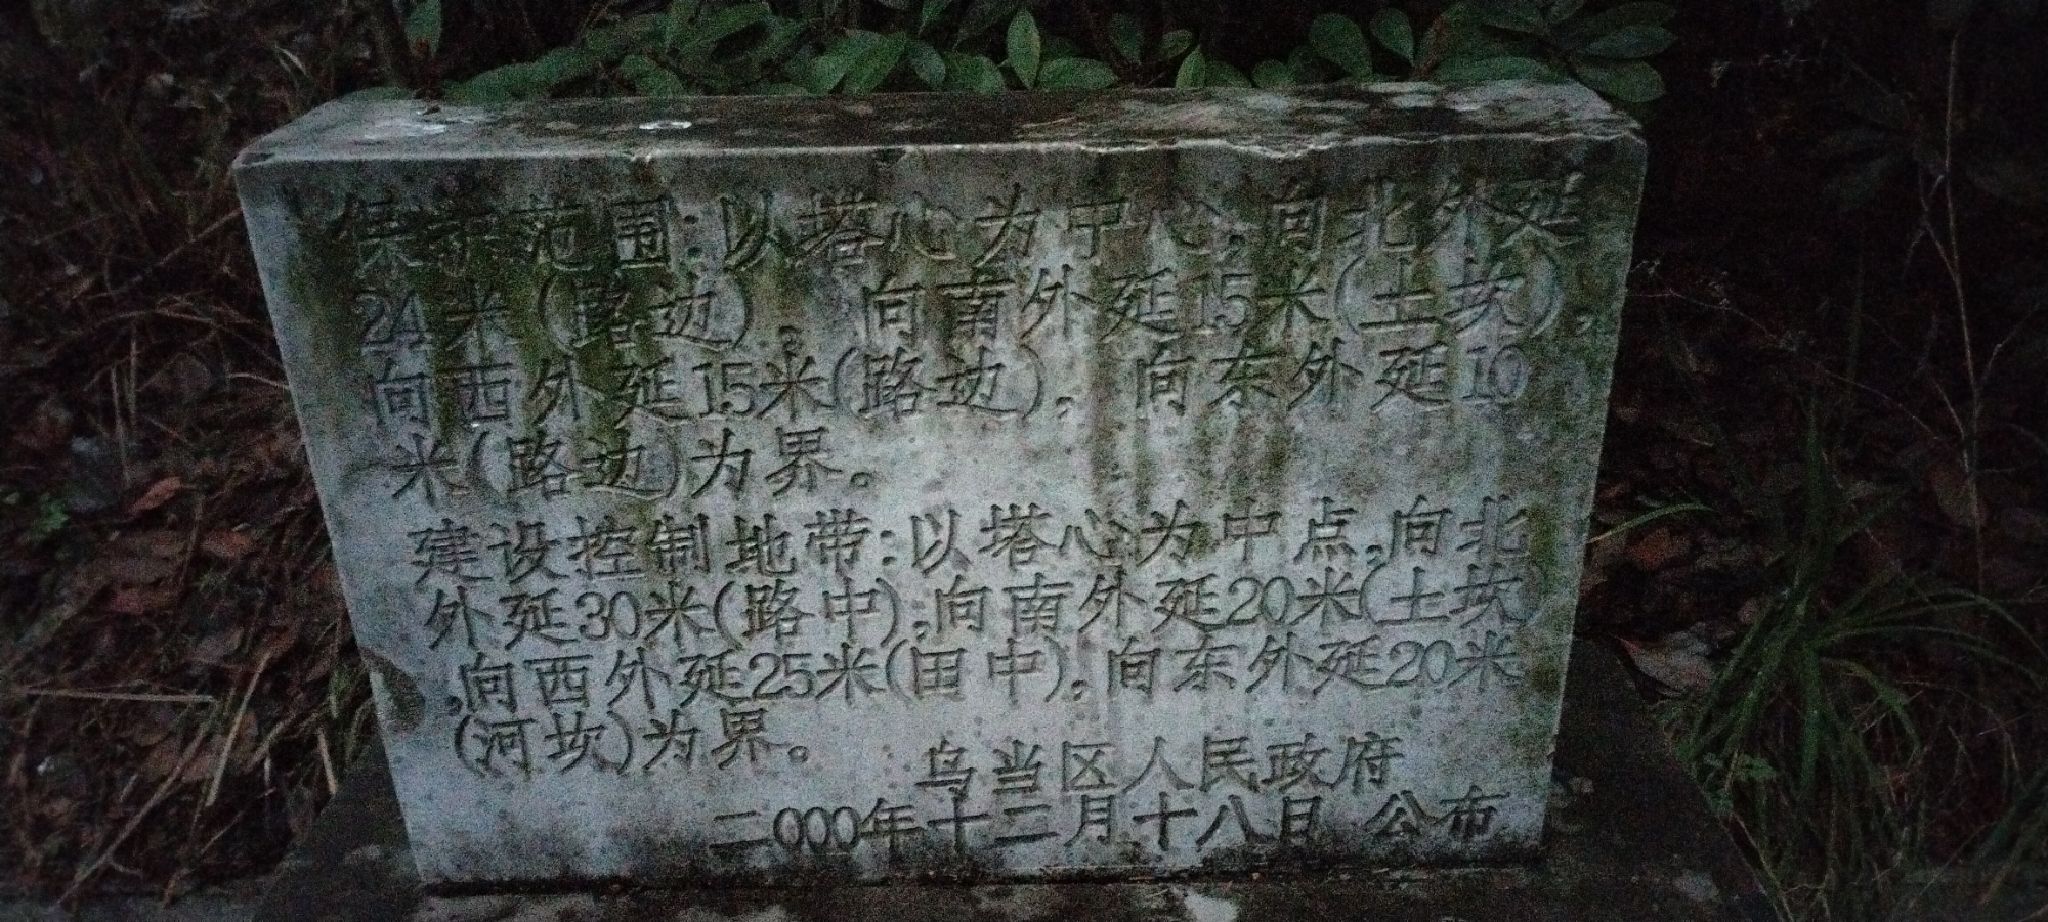 保护范围:以塔心为中心,向北外延
24米(路边)，向南外延15米(土坎),
向西外延15米(路边)，向东外延10
米(路边)为界。
建设控制地带:以塔心为中点,向北
外延30米(路中),向南外延20米(土坎)
,向西外延25米(田中),向东外延20米
(河坎)为界。
乌当区人民政府
二000年十二月十八日 公布